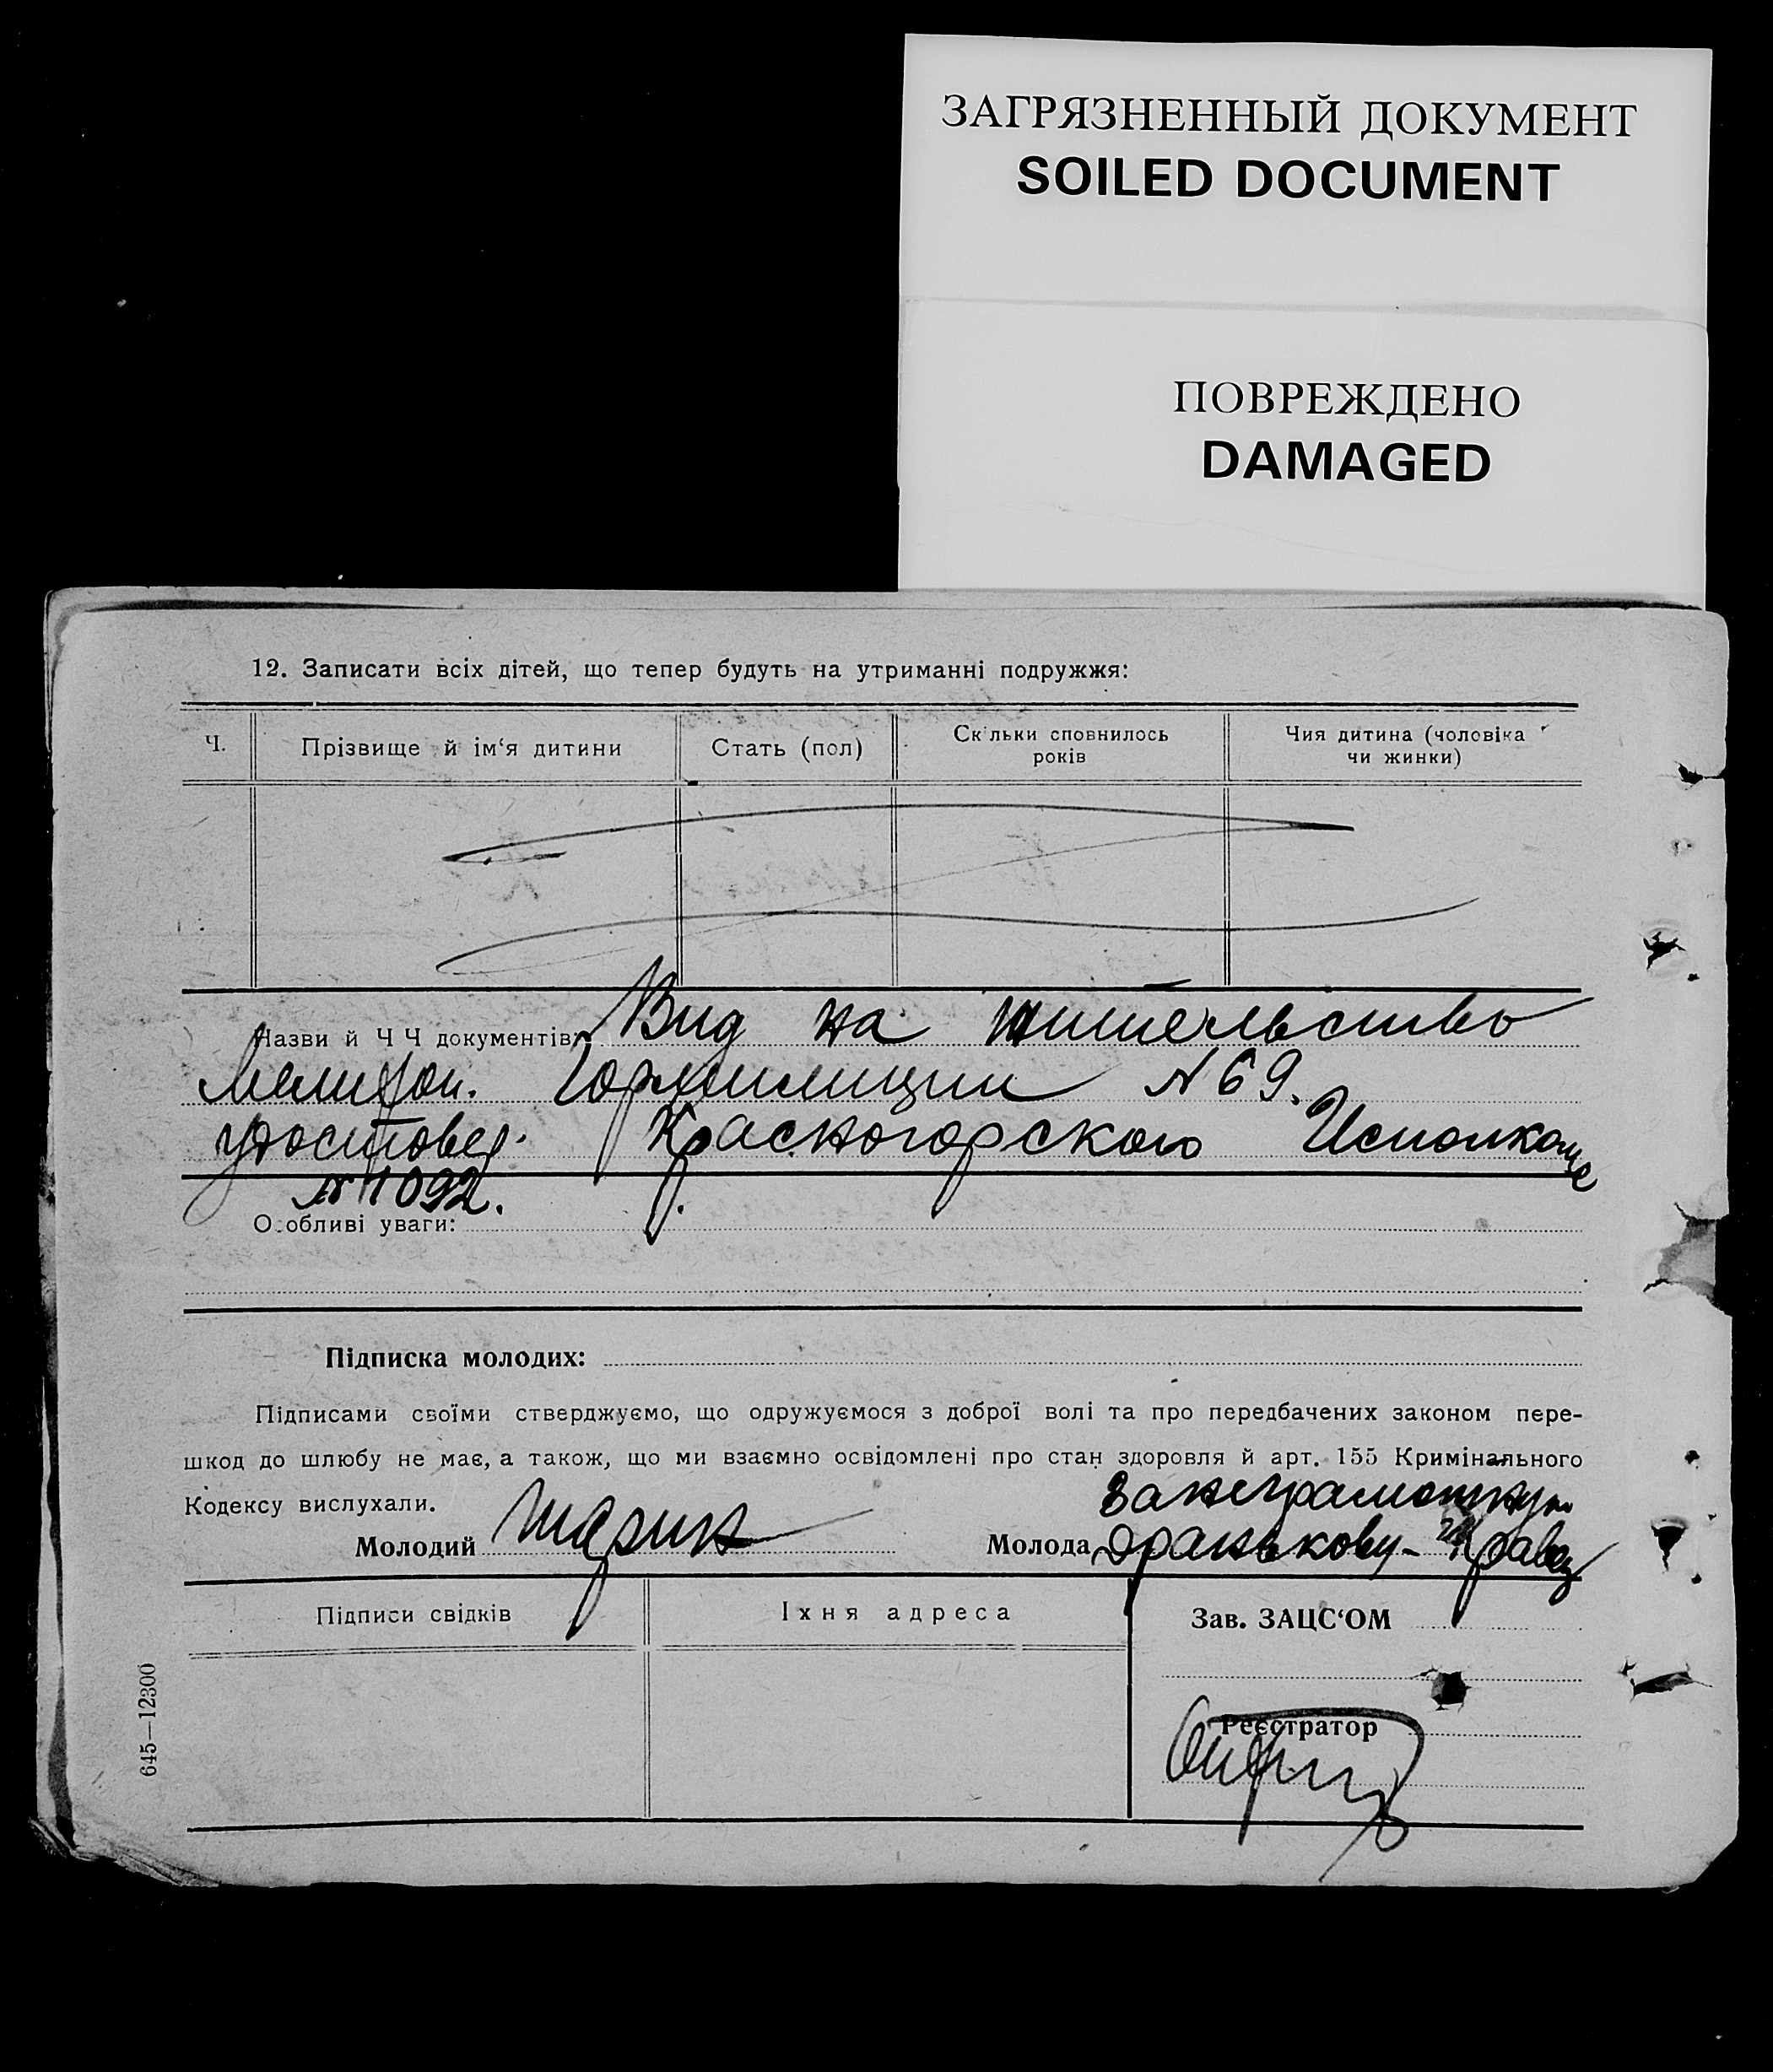 ЗАГРЯЗНЕННЫЙ ДОКУМЕНТ
SOILED DOCUMENT
ПОВРЕЖДЕНО
DAMAGED
12. Записати всіх дітей, що тепер будуть на утриманні подружжя:
Ч.
Прізвище й ім‘я дитини
Стать (пол)
Скільки сповнилось
років
Чия дитина (чоловіка
чи жинки)
Назви й Ч Ч документів: Вид на жительство
Мелитоп. Гормилиции № 69.
удостовер. Красногорского Исполкома
№ 1092.
Особливі уваги:
Підписка молодих:
Підписами своїми стверджуємо, що одружуємося з доброї волі та про передбачених законом пере-
шкод до шлюбу не має, а також, що ми взаємно освідомлені про стан здоровля й арт. 155 Кримінального
Кодексу вислухали.
за неграмотную
Молодий
Молода Дранькову - Кравец
Підписи свідків
Їхня адреса
Зав. ЗАЦС‘ОМ
Реєстратор
645—12300